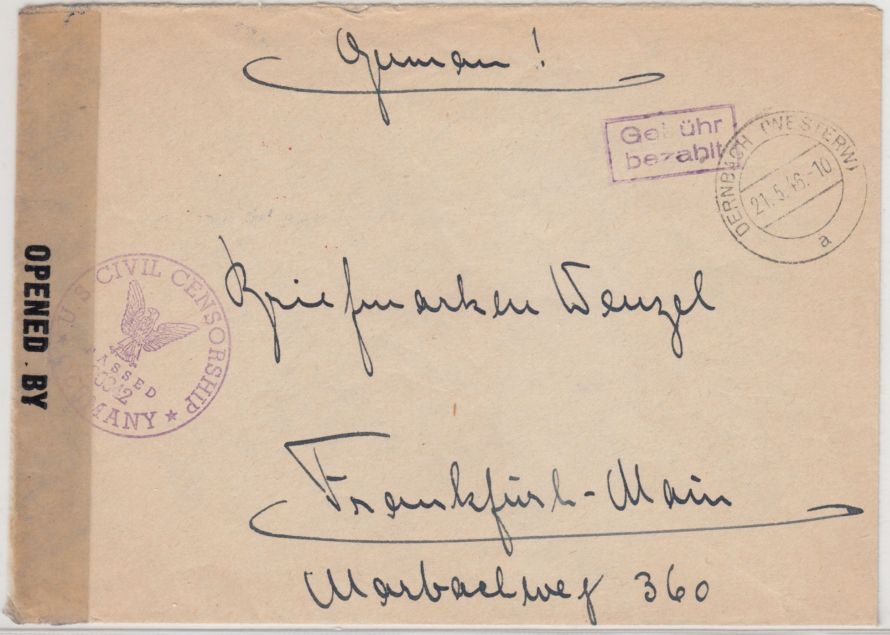 German!
Gebühr
bezahlt
DERNBACH (WESTERW)
21.5.46.-10
a
OPENED BY
U S CIVIL CENSORSHIP
PASSED
GERMANY
Briefmarken Wenzel
Frankfurt-Main
Marbachweg 360